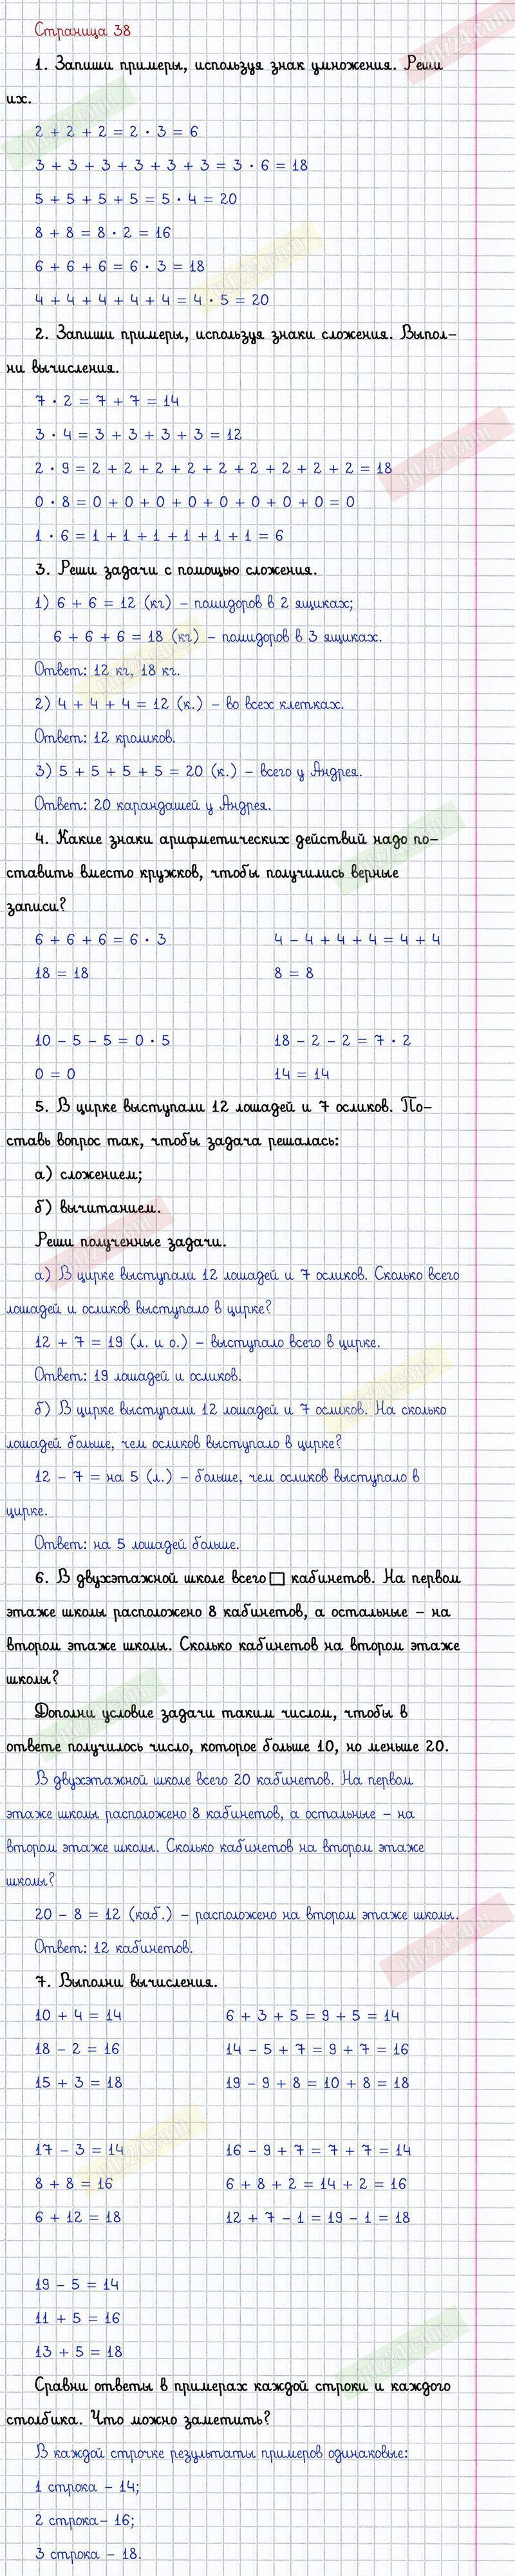 Страница 38
1. Запиши примеры, используя знак умножения. Реши
их.
2 + 2 + 2 = 2 · 3 = 6
3 + 3 + 3 + 3 + 3 + 3 = 3 · 6 = 18
5 + 5 + 5 + 5 = 5 · 4 = 20
8 + 8 = 8 · 2 = 16
6 + 6 + 6 = 6 · 3 = 18
4 + 4 + 4 + 4 + 4 = 4 · 5 = 20
2. Запиши примеры, используя знаки сложения. Выпол-
ни вычисления.
7 · 2 = 7 + 7 = 14
3 · 4 = 3 + 3 + 3 + 3 = 12
2 · 9 = 2 + 2 + 2 + 2 + 2 + 2 + 2 + 2 + 2 = 18
0 · 8 = 0 + 0 + 0 + 0 + 0 + 0 + 0 + 0 = 0
1 · 6 = 1 + 1 + 1 + 1 + 1 + 1 = 6
3. Реши задачи с помощью сложения.
1) 6 + 6 = 12 (кг) - помидоров в 2 ящиках;
6 + 6 + 6 = 18 (кг) - помидоров в 3 ящиках.
Ответ: 12 кг, 18 кг.
2) 4 + 4 + 4 = 12 (к.) - во всех клетках.
Ответ: 12 кроликов.
3) 5 + 5 + 5 + 5 = 20 (к.) - всего у Андрея.
Ответ: 20 карандашей у Андрея.
4. Какие знаки арифметических действий надо по-
ставить вместо кружков, чтобы получились верные
записи?
6 + 6 + 6 = 6 · 3 4 - 4 + 4 + 4 = 4 + 4
18 = 18 8 = 8
10 - 5 - 5 = 0 · 5 18 - 2 - 2 = 7 · 2
0 = 0 14 = 14
5. В цирке выступали 12 лошадей и 7 осликов. По-
ставь вопрос так, чтобы задача решалась:
а) сложением;
б) вычитанием.
Реши полученные задачи.
а) В цирке выступали 12 лошадей и 7 осликов. Сколько всего
лошадей и осликов выступало в цирке?
12 + 7 = 19 (л. и о.) - выступало всего в цирке.
Ответ: 19 лошадей и осликов.
б) В цирке выступали 12 лошадей и 7 осликов. На сколько
лошадей больше, чем осликов выступало в цирке?
12 - 7 = на 5 (л.) - больше, чем осликов выступало в
цирке.
Ответ: на 5 лошадей больше.
6. В двухэтажной школе всего □ кабинетов. На первом
этаже школы расположено 8 кабинетов, а остальные - на
втором этаже школы. Сколько кабинетов на втором этаже
школы?
Дополни условие задачи таким числом, чтобы в
ответе получилось число, которое больше 10, но меньше 20.
В двухэтажной школе всего 20 кабинетов. На первом
этаже школы расположено 8 кабинетов, а остальные - на
втором этаже школы. Сколько кабинетов на втором этаже
школы?
20 - 8 = 12 (каб.) - расположено на втором этаже школы.
Ответ: 12 кабинетов.
7. Выполни вычисления.
10 + 4 = 14 6 + 3 + 5 = 9 + 5 = 14
18 - 2 = 16 14 - 5 + 7 = 9 + 7 = 16
15 + 3 = 18 19 - 9 + 8 = 10 + 8 = 18
17 - 3 = 14 16 - 9 + 7 = 7 + 7 = 14
8 + 8 = 16 6 + 8 + 2 = 14 + 2 = 16
6 + 12 = 18 12 + 7 - 1 = 19 - 1 = 18
19 - 5 = 14
11 + 5 = 16
13 + 5 = 18
Сравни ответы в примерах каждой строки и каждого
столбика. Что можно заметить?
В каждой строчке результаты примеров одинаковые:
1 строка - 14;
2 строка- 16;
3 строка - 18.